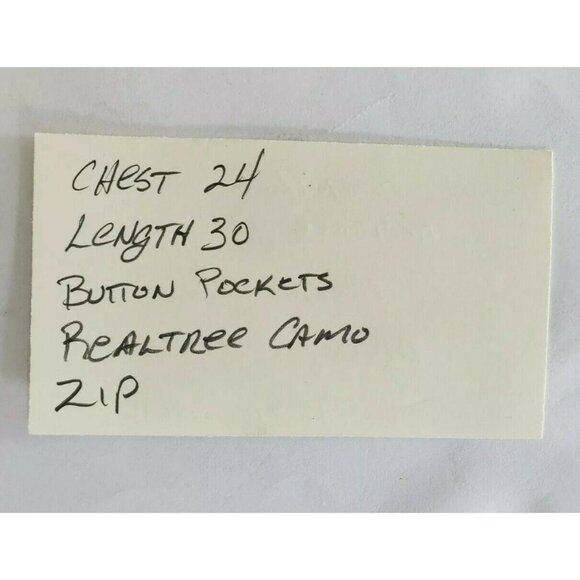 CHEST 24
LENGTH 30
BUTTON POCKETS
REALTREE CAMO
ZIP